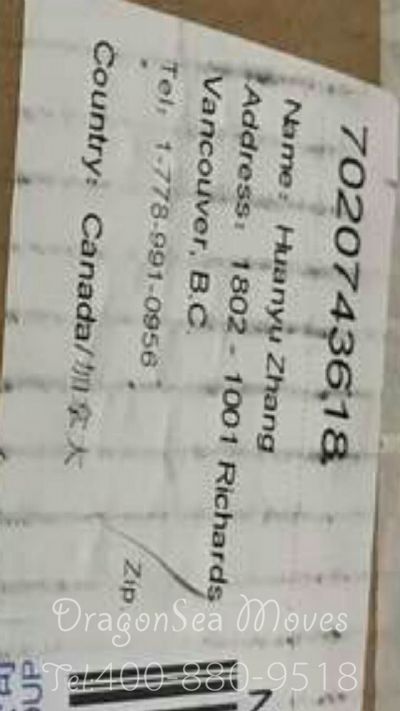 7020743618
Name: Huanyu Zhang
Address: 1802 - 1001 Richards
Vancouver, B.C.
Tel: 1-778-991-0956
Zip.
Country: Canada/加拿大
DragonSea Moves
Tel:400-880-9518